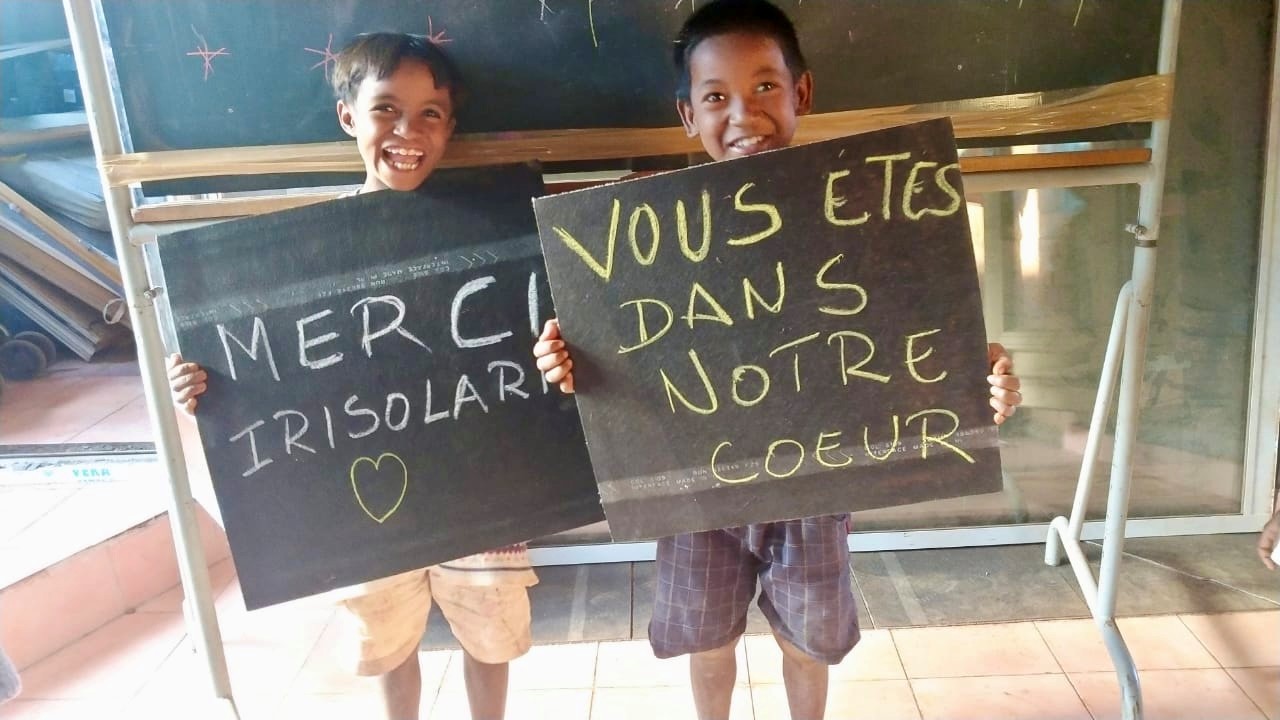 MERCI
IRISOLARI
VOUS ÉTES
DANS
NOTRE
COEUR